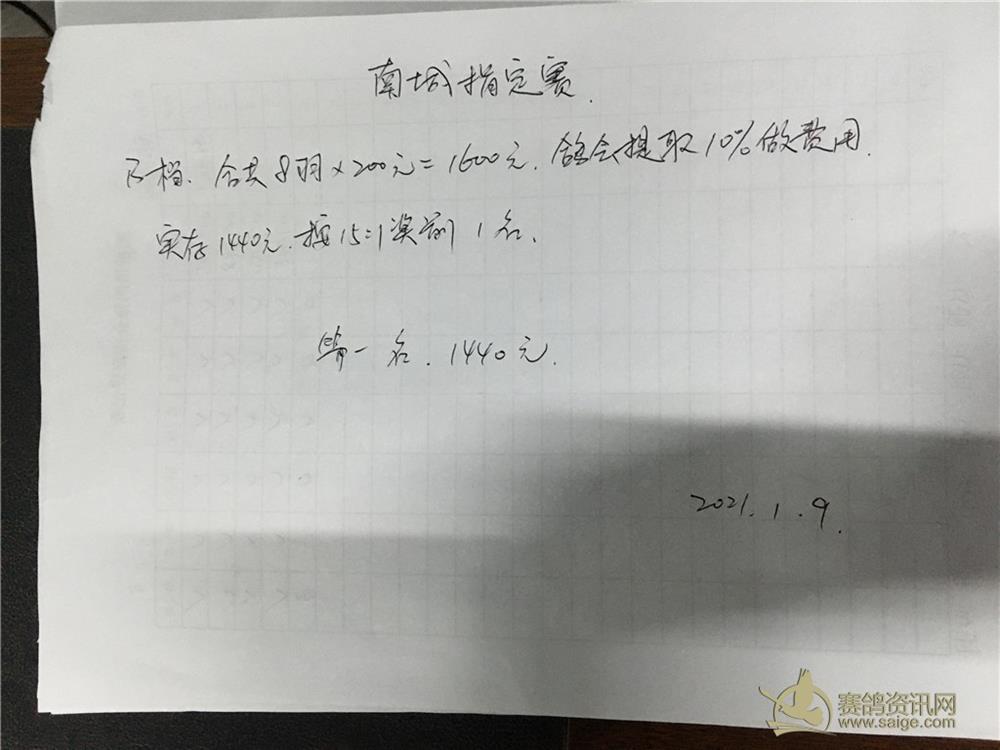 南城指定赛.
B档. 合共8羽×200元=1600元. 鸽会提取10%做费用.
实存1440元. 按15=1奖励1名.
第一名. 1440元.
2021.1.9.
赛鸽资讯网
www.saige.com